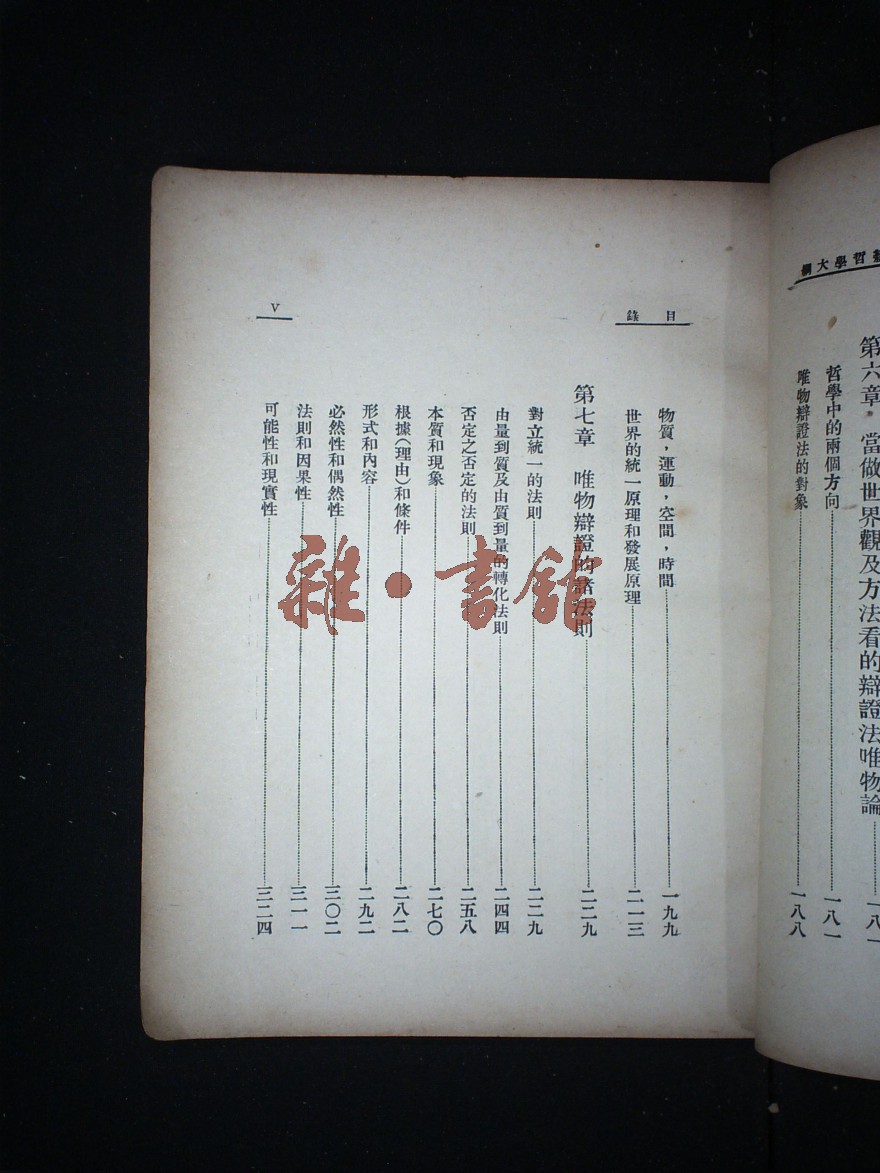 哲學大綱
第六章 當做世界觀及方法看的辯證法唯物論……一八一
哲學中的兩個方向……一八一
唯物辯證法的對象……一八八
目錄
V
物質，運動，空間，時間……一九九
世界的統一原理和發展原理……二一三
第七章 唯物辯證的諸法則……二二九
對立統一的法則……二二九
由量到質及由質到量的轉化法則……二四四
否定之否定的法則……二五八
本質和現象……二七〇
根據(理由)和條件……二八二
形式和內容……二九二
必然性和偶然性……三〇二
法則和因果性……三一一
可能性和現實性……三二四
雜·書館